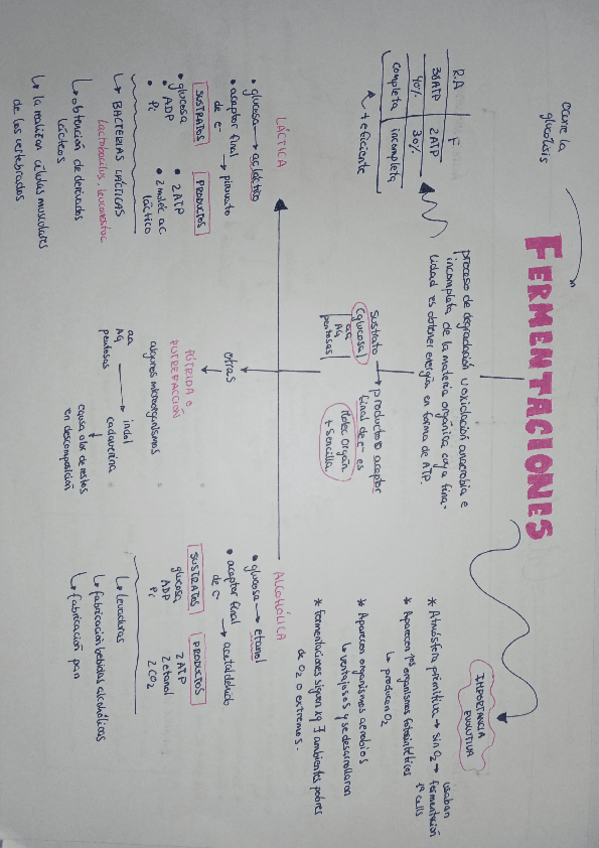 FERMENTACIONES
ocurre la
glucólisis
proceso de degradación u oxidación anaerobia e
incompleta de la materia orgánica cuya fina-
lidad es obtener energía en forma de ATP.
R.A F
38ATP 2ATP
40% 30%
completa incompleta
+ eficiente
sustrato → producto o aceptor
(glucosa) final de e- es
aa
AG
pentosas
molec orgán
+ sencilla
IMPORTANCIA
EVOLUTIVA
* Atmósfera primitiva → sin O2 → usaban
fermentación
1ª cells
* Aparecen 1os organismos fotosintéticos
↳ producen O2
* Aparecen organismos aerobios
↳ ventajosos y se desarrollaron
* Fermentaciones siguen xq ∃ ambientes pobres
de O2 o extremos.
LÁCTICA
• glucosa → ac láctico
• aceptor final → piruvato
de e-
SUSTRATOS PRODUCTOS
• glucosa • 2ATP
• ADP • 2 moléc ac.
• Pi láctico
↳ BACTERIAS LÁCTICAS
Lactobacilus, leuconostoc
↳ obtención de derivados
lácteos
↳ la realizan células musculares
de los vertebrados
otras
PÚTRIDA O
PUTREFACCIÓN
algunos microorganismos
aa
AG → indol
pentosas cadaverina
causa olor de restos
en descomposición
ALCOHÓLICA
• glucosa → etanol
• aceptor final → acetaldehido
de e-
SUSTRATOS PRODUCTOS
glucosa 2ATP
ADP 2 etanol
Pi 2 CO2
↳ levaduras
↳ fabricación bebidas alcohólicas
↳ fabricación pan